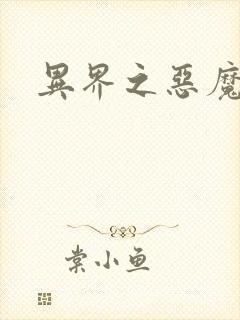 異界之惡魔
棠小鱼